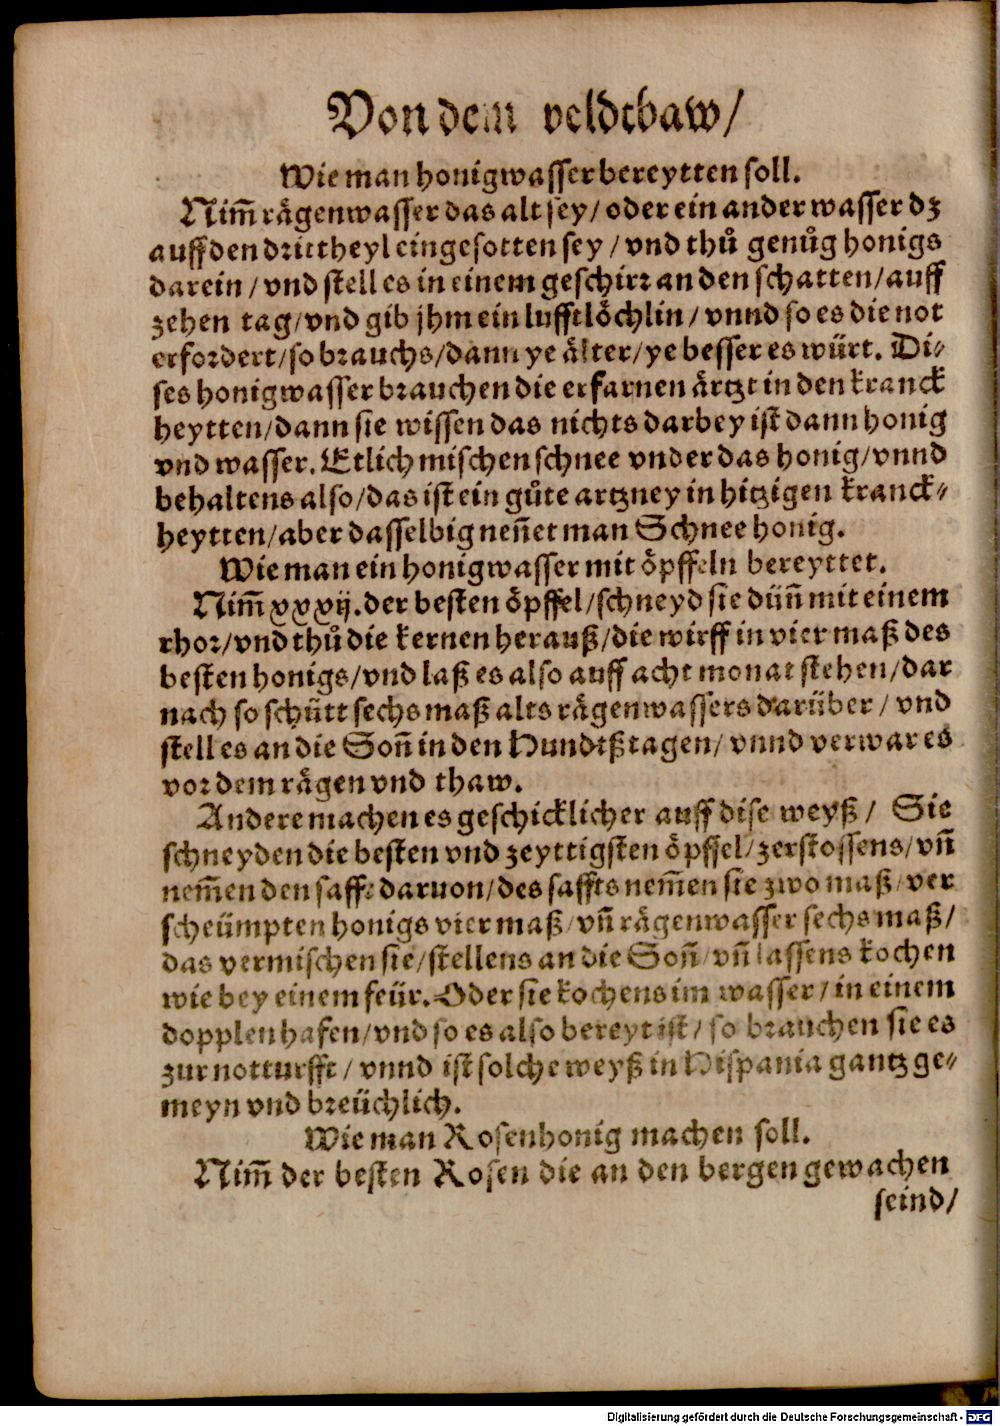 Von dem veldtbaw/
Wie man honigwasser bereytten soll.
Nim̃ rägenwasser das alt sey/ oder ein ander wasser dz
auff den drittheyl eingesotten sey/ vnd thů genůg honigs
darein/ vnd stell es in einem geschirr an den schatten/ auff
zehen tag/ vnd gib jhm ein lufftlöchlin/ vnnd so es die not
erfordert/ so brauchs/ dann ye älter/ ye besser es würt. Di-
ses honigwasser brauchen die erfarnen ärtzt in den kranck
heytten/ dann sie wissen das nichts darbey ist dann honig
vnd wasser. Etlich mischen schnee vnder das honig/ vnnd
behaltens also/ das ist ein gůte artzney in hitzigen kranck-
heytten/ aber dasselbig neñet man Schnee honig.
Wie man ein honigwasser mit öpffeln bereyttet.
Nim̃ xxxij. der besten öpffel/ schneyd sie düñ mit einem
rhor/ vnd thů die kernen herauß/ die wirff in vier maß des
besten honigs/ vnd laß es also auff acht monat stehen/ dar
nach so schütt sechs maß alts rägenwassers darüber/ vnd
stell es an die Soñ in den Hundtßtagen/ vnnd verwar es
vor dem rägen vnd thaw.
Andere machen es geschicklicher auff dise weyß/ Sie
schneyden die besten vnd zeyttigsten öpffel/ zerstossens/ vñ
nem̃en den safft daruon/ des saffts nem̃en sie zwo maß/ ver
scheümpten honigs vier maß/ vñ rägenwasser sechs maß/
das vermischen sie/ stellens an die Soñ/ vñ lassens kochen
wie bey einem feür. Oder sie kochens im wasser/ in einem
dopplen hafen/ vnd so es also bereyt ist/ so brauchen sie es
zur notturfft/ vnnd ist solche weyß in Hispania gantz ge-
meyn vnd breüchlich.
Wie man Rosenhonig machen soll.
Nim̃ der besten Rosen die an den bergen gewachen
seind/
Digitalisierung gefördert durch die Deutsche Forschungsgemeinschaft - DFG